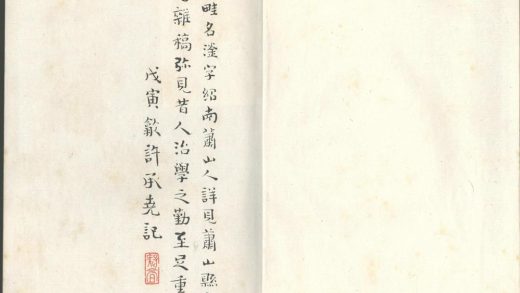 畦名字紹南蕭山人詳見蕭山縣
雜稿弥見昔人治學之勤至足重
戊寅歙許承堯記